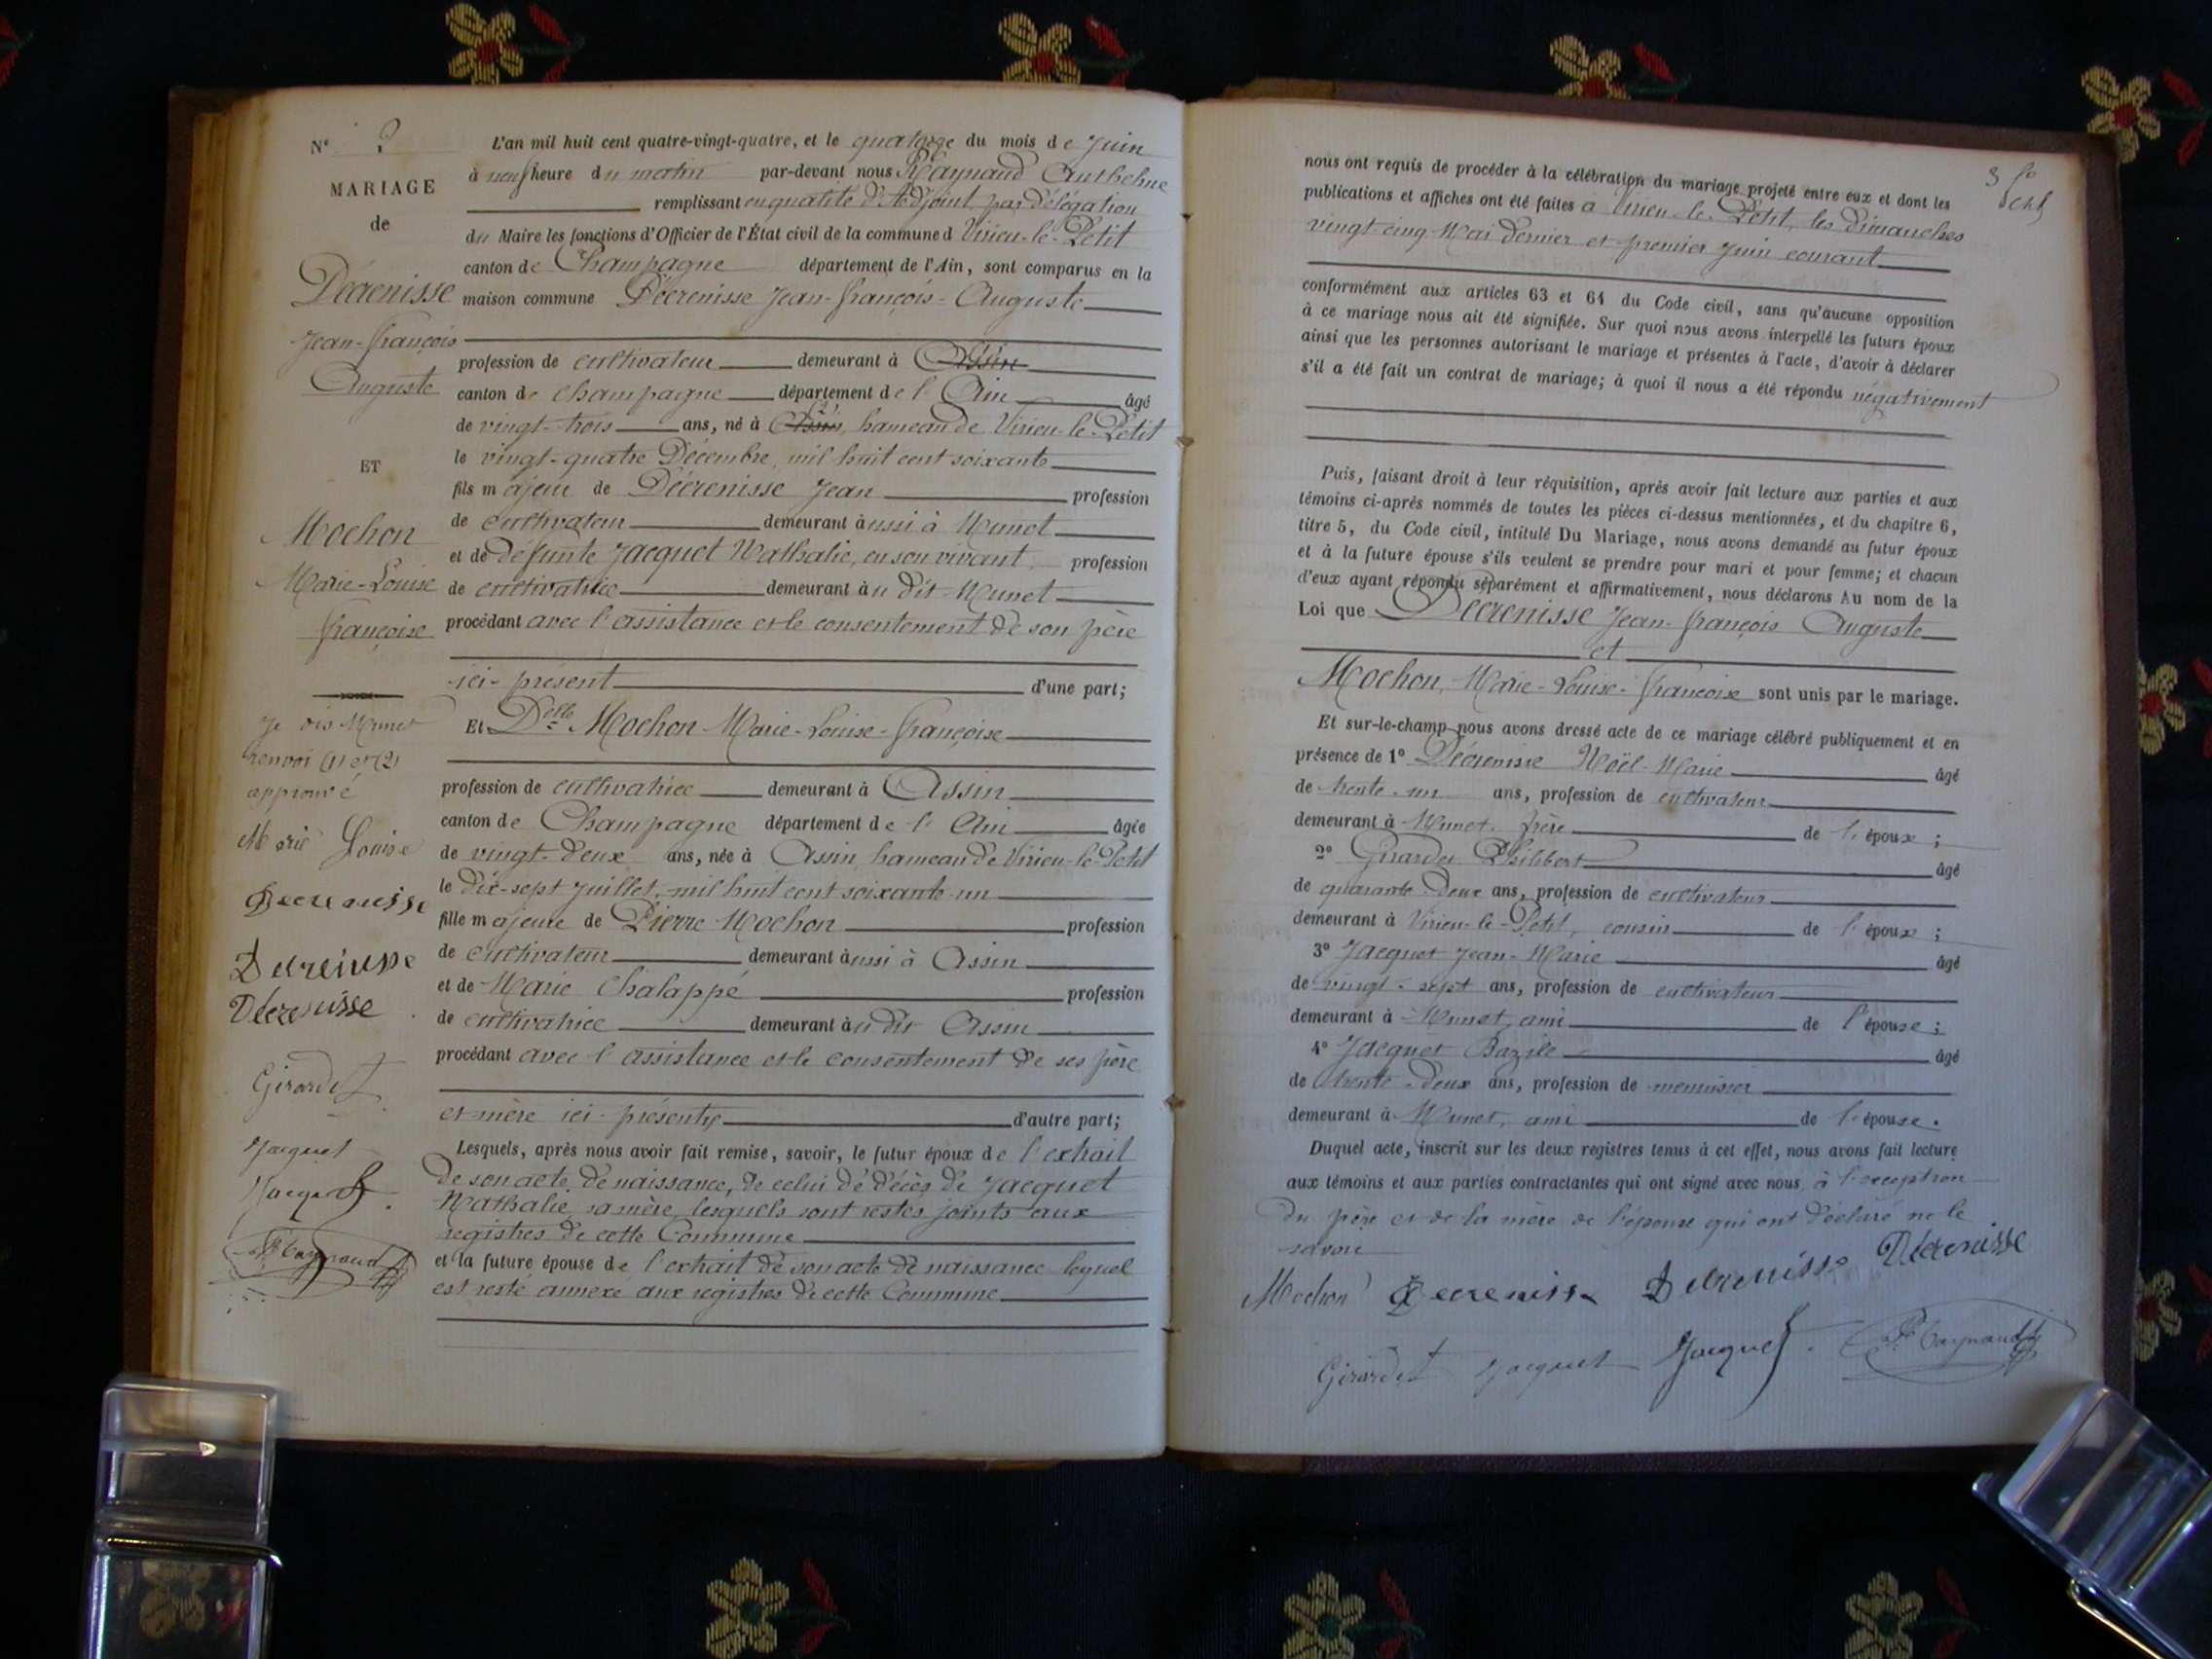 N° 2
MARIAGE
de
Décrenisse
Jean-françois
Auguste
ET
Mochon
Marie-Louise
françoise
Je dis Munet
renvoi (1) et (2)
approuvé
Marie Louise
Decrenisse
Decrenisse
Décrenisse
Girardet
Jacquet
Jacquet
Raynaud
L'an mil huit cent quatre-vingt-quatre, et le quatorze du mois de Juin
à neuf heure du matin par-devant nous Raynaud Anthelme
remplissant en qualité d'Adjoint par délégation
du Maire les fonctions d'Officier de l'État civil de la commune d Virieu-le-Petit
canton de Champagne département de l'Ain, sont comparus en la
maison commune Décrenisse Jean-françois-Auguste
profession de cultivateur demeurant à Assin
canton de Champagne département de l'Ain âgé
de vingt-trois ans, né à Assin, hameau de Virieu-le-Petit
le vingt-quatre Décembre, mil huit cent soixante
fils majeur de Décrenisse Jean profession
de cultivateur demeurant aussi à Munet
et de défunte Jacquet Nathalie, en son vivant, profession
de cultivatrice demeurant au dit Munet
procédant avec l'assistance et le consentement de son père
ici-présent d'une part;
Et Delle Mochon Marie-Louise-françoise
profession de cultivatrice demeurant à Assin
canton de Champagne département de l'Ain âgée
de vingt-deux ans, née à Assin, hameau de Virieu-le-Petit
le dix-sept Juillet, mil huit cent soixante-un
fille majeure de Pierre Mochon profession
de cultivateur demeurant aussi à Assin
et de Marie Chalappé profession
de cultivatrice demeurant au dit Assin
procédant avec l'assistance et le consentement de ses père
et mère ici-présents d'autre part;
Lesquels, après nous avoir fait remise, savoir, le futur époux de l'extrait
de son acte de naissance, de celui de décès de Jacquet
Nathalie, sa mère, lesquels sont restés joints aux
registres de cette Commune
et la future épouse de l'extrait de son acte de naissance lequel
est resté annexé aux registres de cette Commune
3 fo
nous ont requis de procéder à la célébration du mariage projeté entre eux et dont les
publications et affiches ont été faites à Virieu-le-Petit, les dimanches
vingt-cinq Mai dernier et premier Juin courant
conformément aux articles 63 et 64 du Code civil, sans qu'aucune opposition
à ce mariage nous ait été signifiée. Sur quoi nous avons interpellé les futurs époux
ainsi que les personnes autorisant le mariage et présentes à l'acte, d'avoir à déclarer
s'il a été fait un contrat de mariage; à quoi il nous a été répondu négativement
Puis, faisant droit à leur réquisition, après avoir fait lecture aux parties et aux
témoins ci-après nommés de toutes les pièces ci-dessus mentionnées, et du chapitre 6,
titre 5, du Code civil, intitulé Du Mariage, nous avons demandé au futur époux
et à la future épouse s'ils veulent se prendre pour mari et pour femme; et chacun
d'eux ayant répondu séparément et affirmativement, nous déclarons Au nom de la
Loi que Décrenisse Jean-françois Auguste
et
Mochon, Marie-Louise-françoise sont unis par le mariage.
Et sur-le-champ nous avons dressé acte de ce mariage célébré publiquement et en
présence de 1° Décrenisse Noël-Marie âgé
de trente-un ans, profession de cultivateur
demeurant à Munet, frère de l'époux;
2° Girardet Philibert âgé
de quarante-deux ans, profession de cultivateur
demeurant à Virieu-le-Petit, cousin de l'époux;
3° Jacquet Jean-Marie âgé
de vingt-sept ans, profession de cultivateur
demeurant à Munet, ami de l'épouse;
4° Jacquet Bazile âgé
de trente-deux ans, profession de menuisier
demeurant à Munet, ami de l'épouse.
Duquel acte, inscrit sur les deux registres tenus à cet effet, nous avons fait lecture
aux témoins et aux parties contractantes qui ont signé avec nous, à l'exception
du père et de la mère de l'épouse qui ont déclaré ne le
savoir
Mochon Decrenisse Decrenisse Décrenisse
Girardet Jacquet Jacquet Raynaud